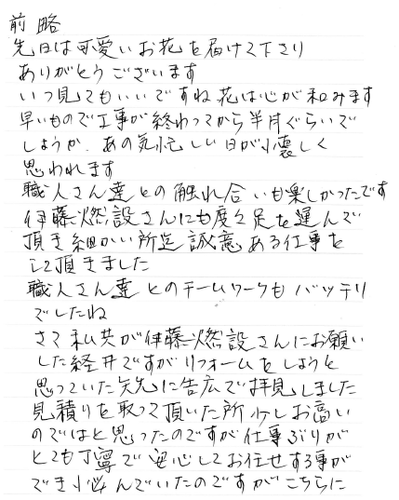 前略
先日は可愛いお花を届けて下さり
ありがとうございます
いつ見てもいいですね花は心が和みます
早いもので工事が終わってから半月ぐらいで
しょうか、あの気忙しい日が懐しく
思われます
職人さん達との触れ合いも楽しかったです
伊藤燃設さんにも度々足を運んで
頂き細かい所迄誠意ある仕事を
して頂きました
職人さん達とのチームワークもバッチリ
でしたね
さて私共が伊藤燃設さんにお願い
した経井ですがリフォームをしようと
思っていた矢先に広告で拝見しました
見積りを取って頂いた所少しお高い
のではと思ったのですが仕事ぶりが
とても丁寧で安心してお任せする事が
でき悩んでいたのですがこちらに